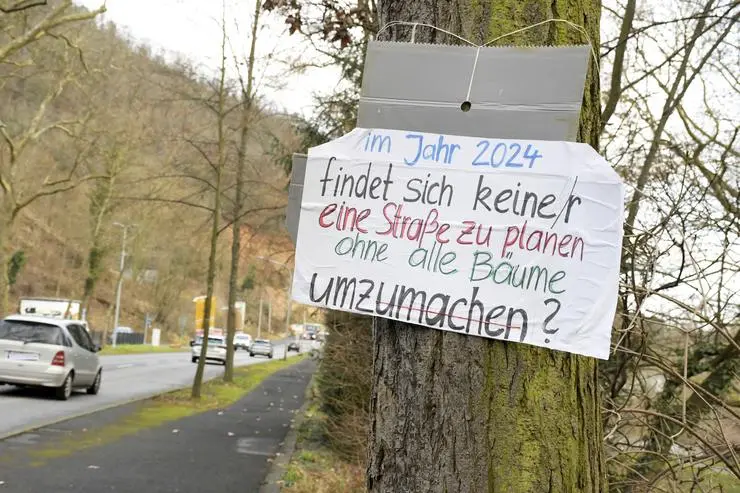 im Jahr 2024
findet sich keine/r
eine Straße zu planen
ohne alle Bäume
umzumachen?